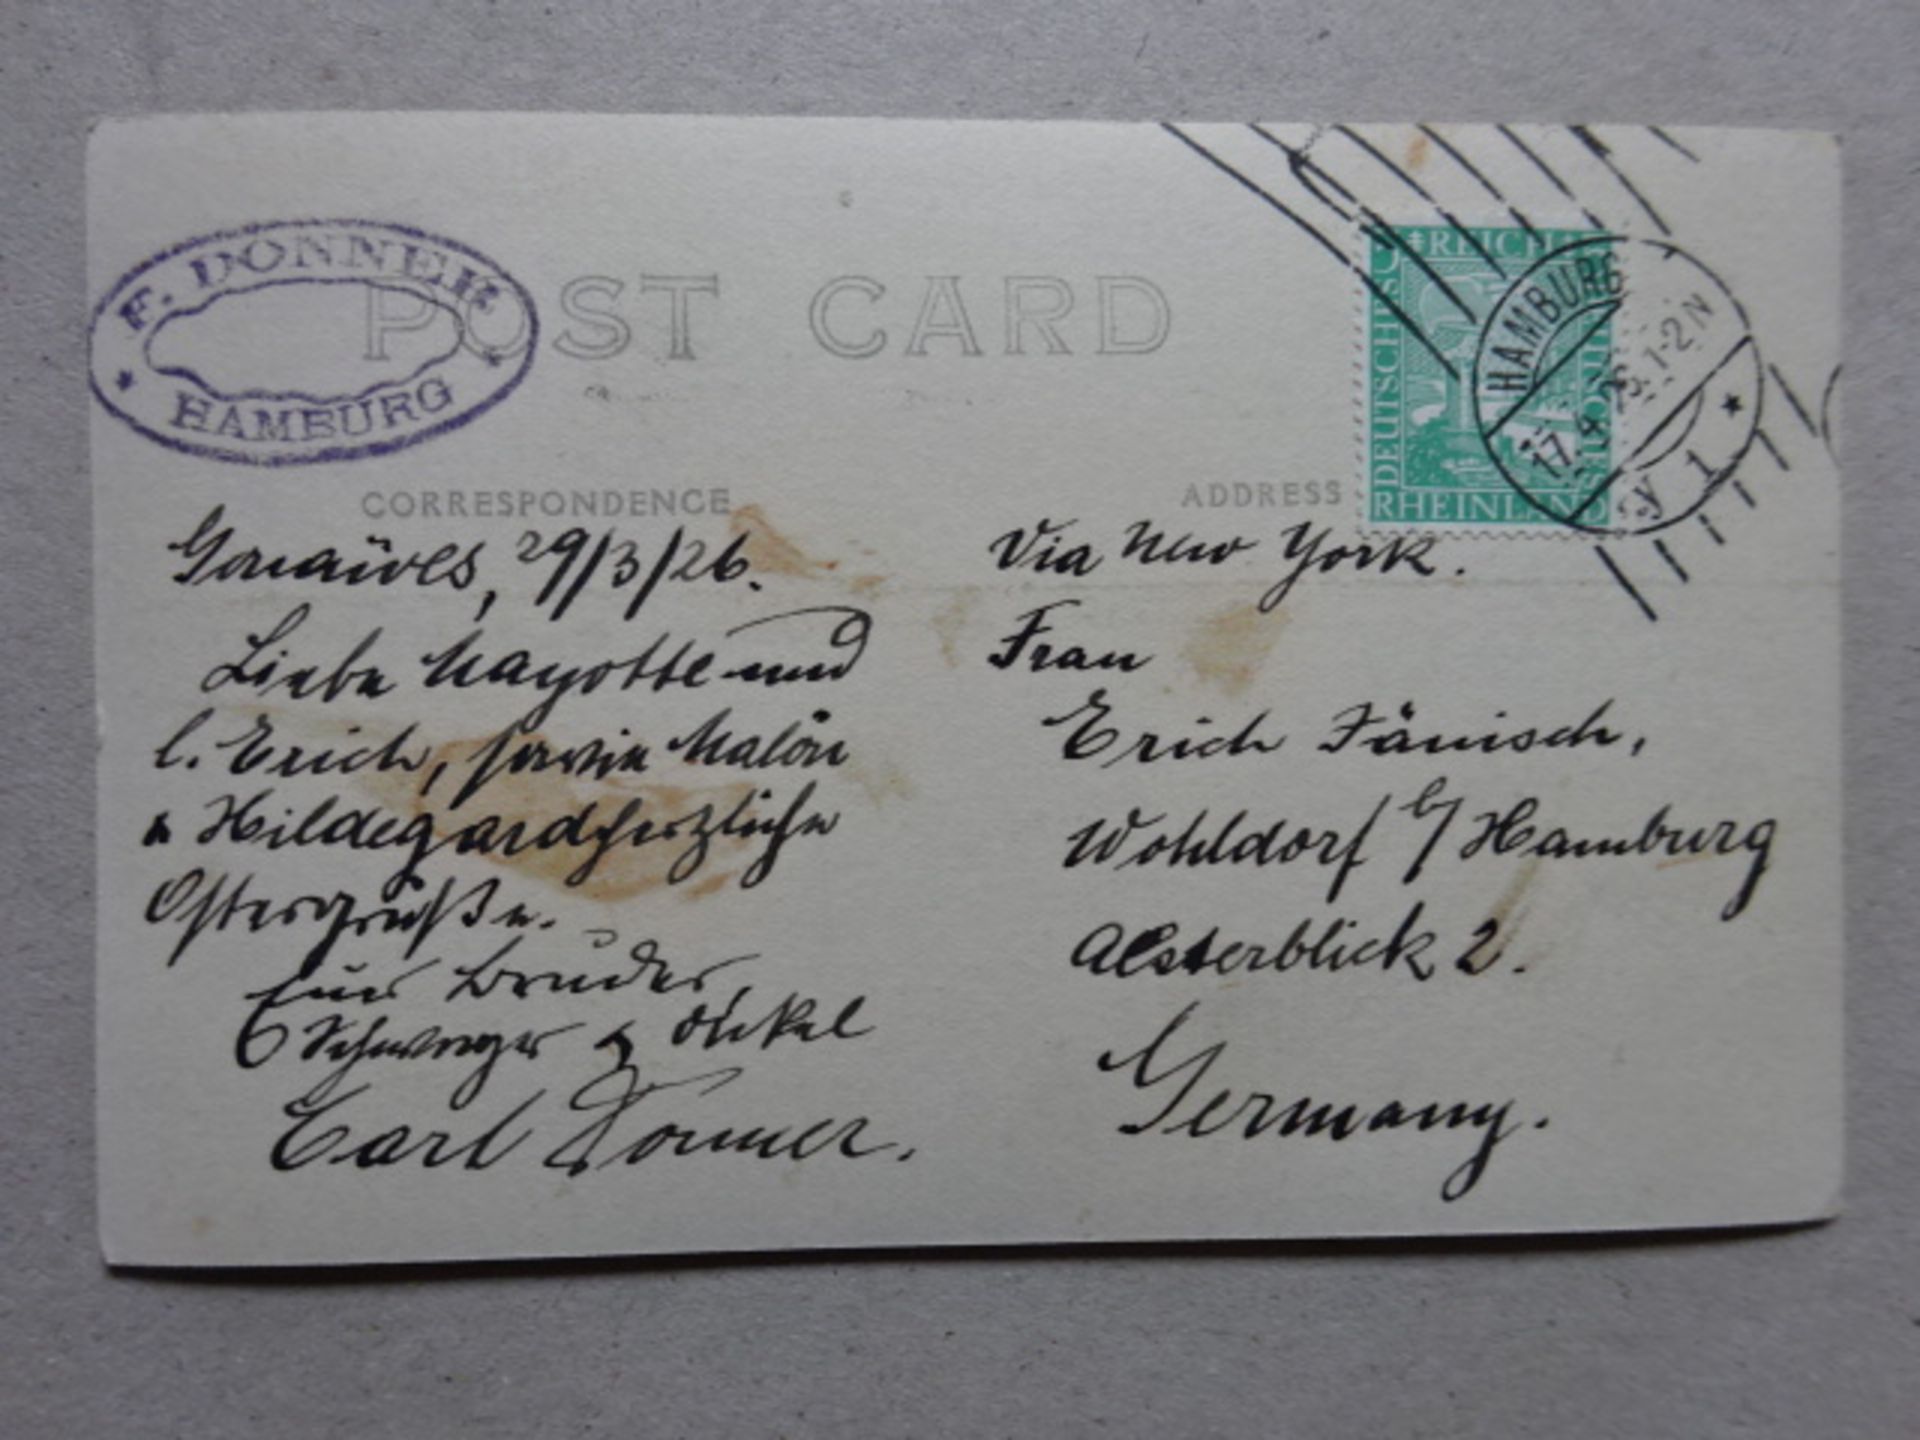 F. DONNER
HAMBURG
POST CARD
CORRESPONDENCE
ADDRESS
DEUTSCHES REICH
RHEINLAND
HAMBURG
17.4.26.1-2N
*y 1*
Gonaïves, 29/3/26.
Liebe Mayotte und
l. Erich, sowie Malön
u Hildegard herzliche
Ostergrüße.
Euer Bruder,
Schwager & Onkel
Carl Donner.
Via New York.
Frau
Erich Jänisch,
Wohldorf b/Hamburg
Alsterblick 2.
Germany.